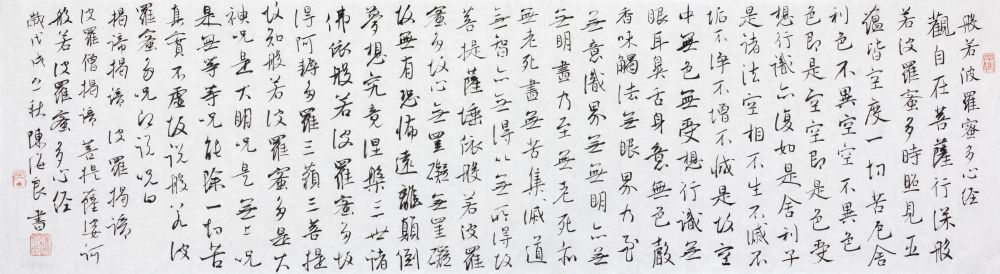 般若波羅蜜多心经
觀自在菩薩行深般
若波羅蜜多時照見五
蕴皆空度一切苦厄舍
利色不異空空不異色
色即是空空即是色受
想行識亦復如是舍利子
是诸法空相不生不滅不
垢不淨不增不减是故空
中無色無受想行識無
眼耳鼻舌身意無色聲
香味觸法無眼界乃至
無意識界無無明亦無
無明盡乃至無老死亦
無老死盡無苦集滅道
無智亦無得以無所得故
菩提薩埵依般若波羅
蜜多故心無罣礙無罣礙
故無有恐怖遠離顛倒
夢想究竟涅槃三世诸
佛依般若波羅蜜多故
得阿耨多羅三藐三菩提
故知般若波羅蜜多是大
神咒是大明咒是無上咒
是無等等咒能除一切苦
真實不虚故说般若波
羅蜜多咒即说咒曰
揭谛揭谛 波羅揭谛
波羅僧揭谛 菩提薩婆訶
般若波羅蜜多心经
歲戊戌之秋陳海良書